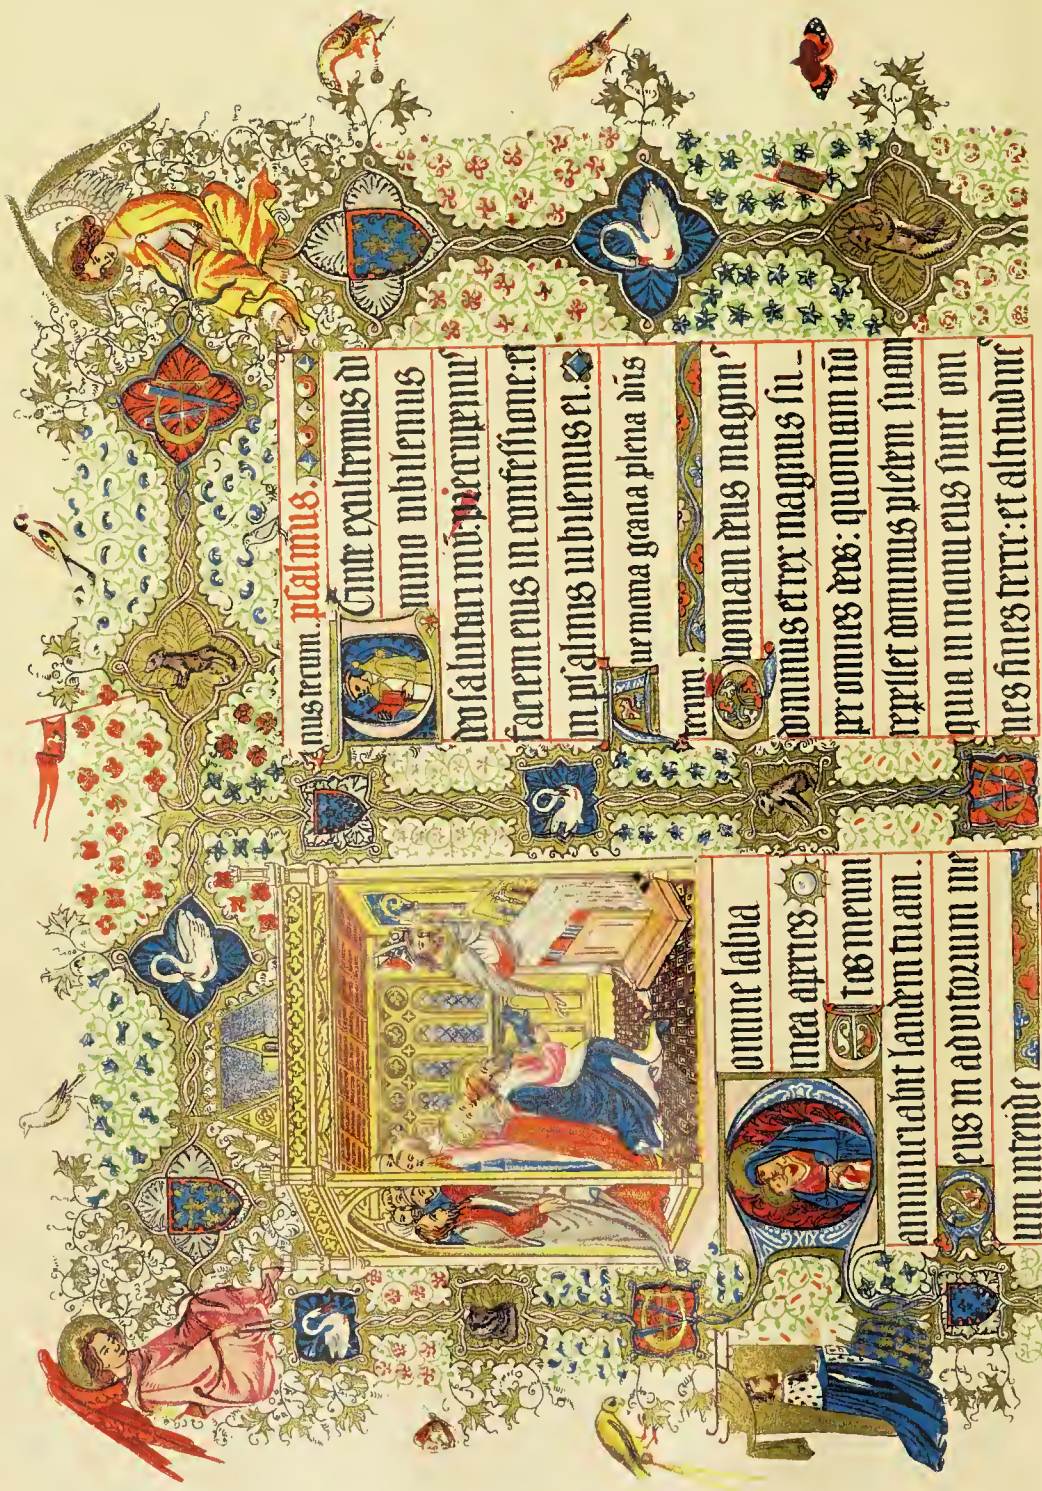 Domine labia
mea aperies
Et os meum
annunciabit laudem tuam.
Deus in adiutorium me
um intende
nus tecum. psalmus.
Uenite exultemus do
mino iubilemus
deo salutari
faciem eius in confessione: et
in psalmis iubilemus ei.
Aue maria gracia plena dn̄s
tecum.
Quoniam deus magnus
dominus et rex magnus su
per omnes deos: quoniam nō
repellet dominus plebem suam
quia in manu eius sunt om
nes fines terre: et altitudines